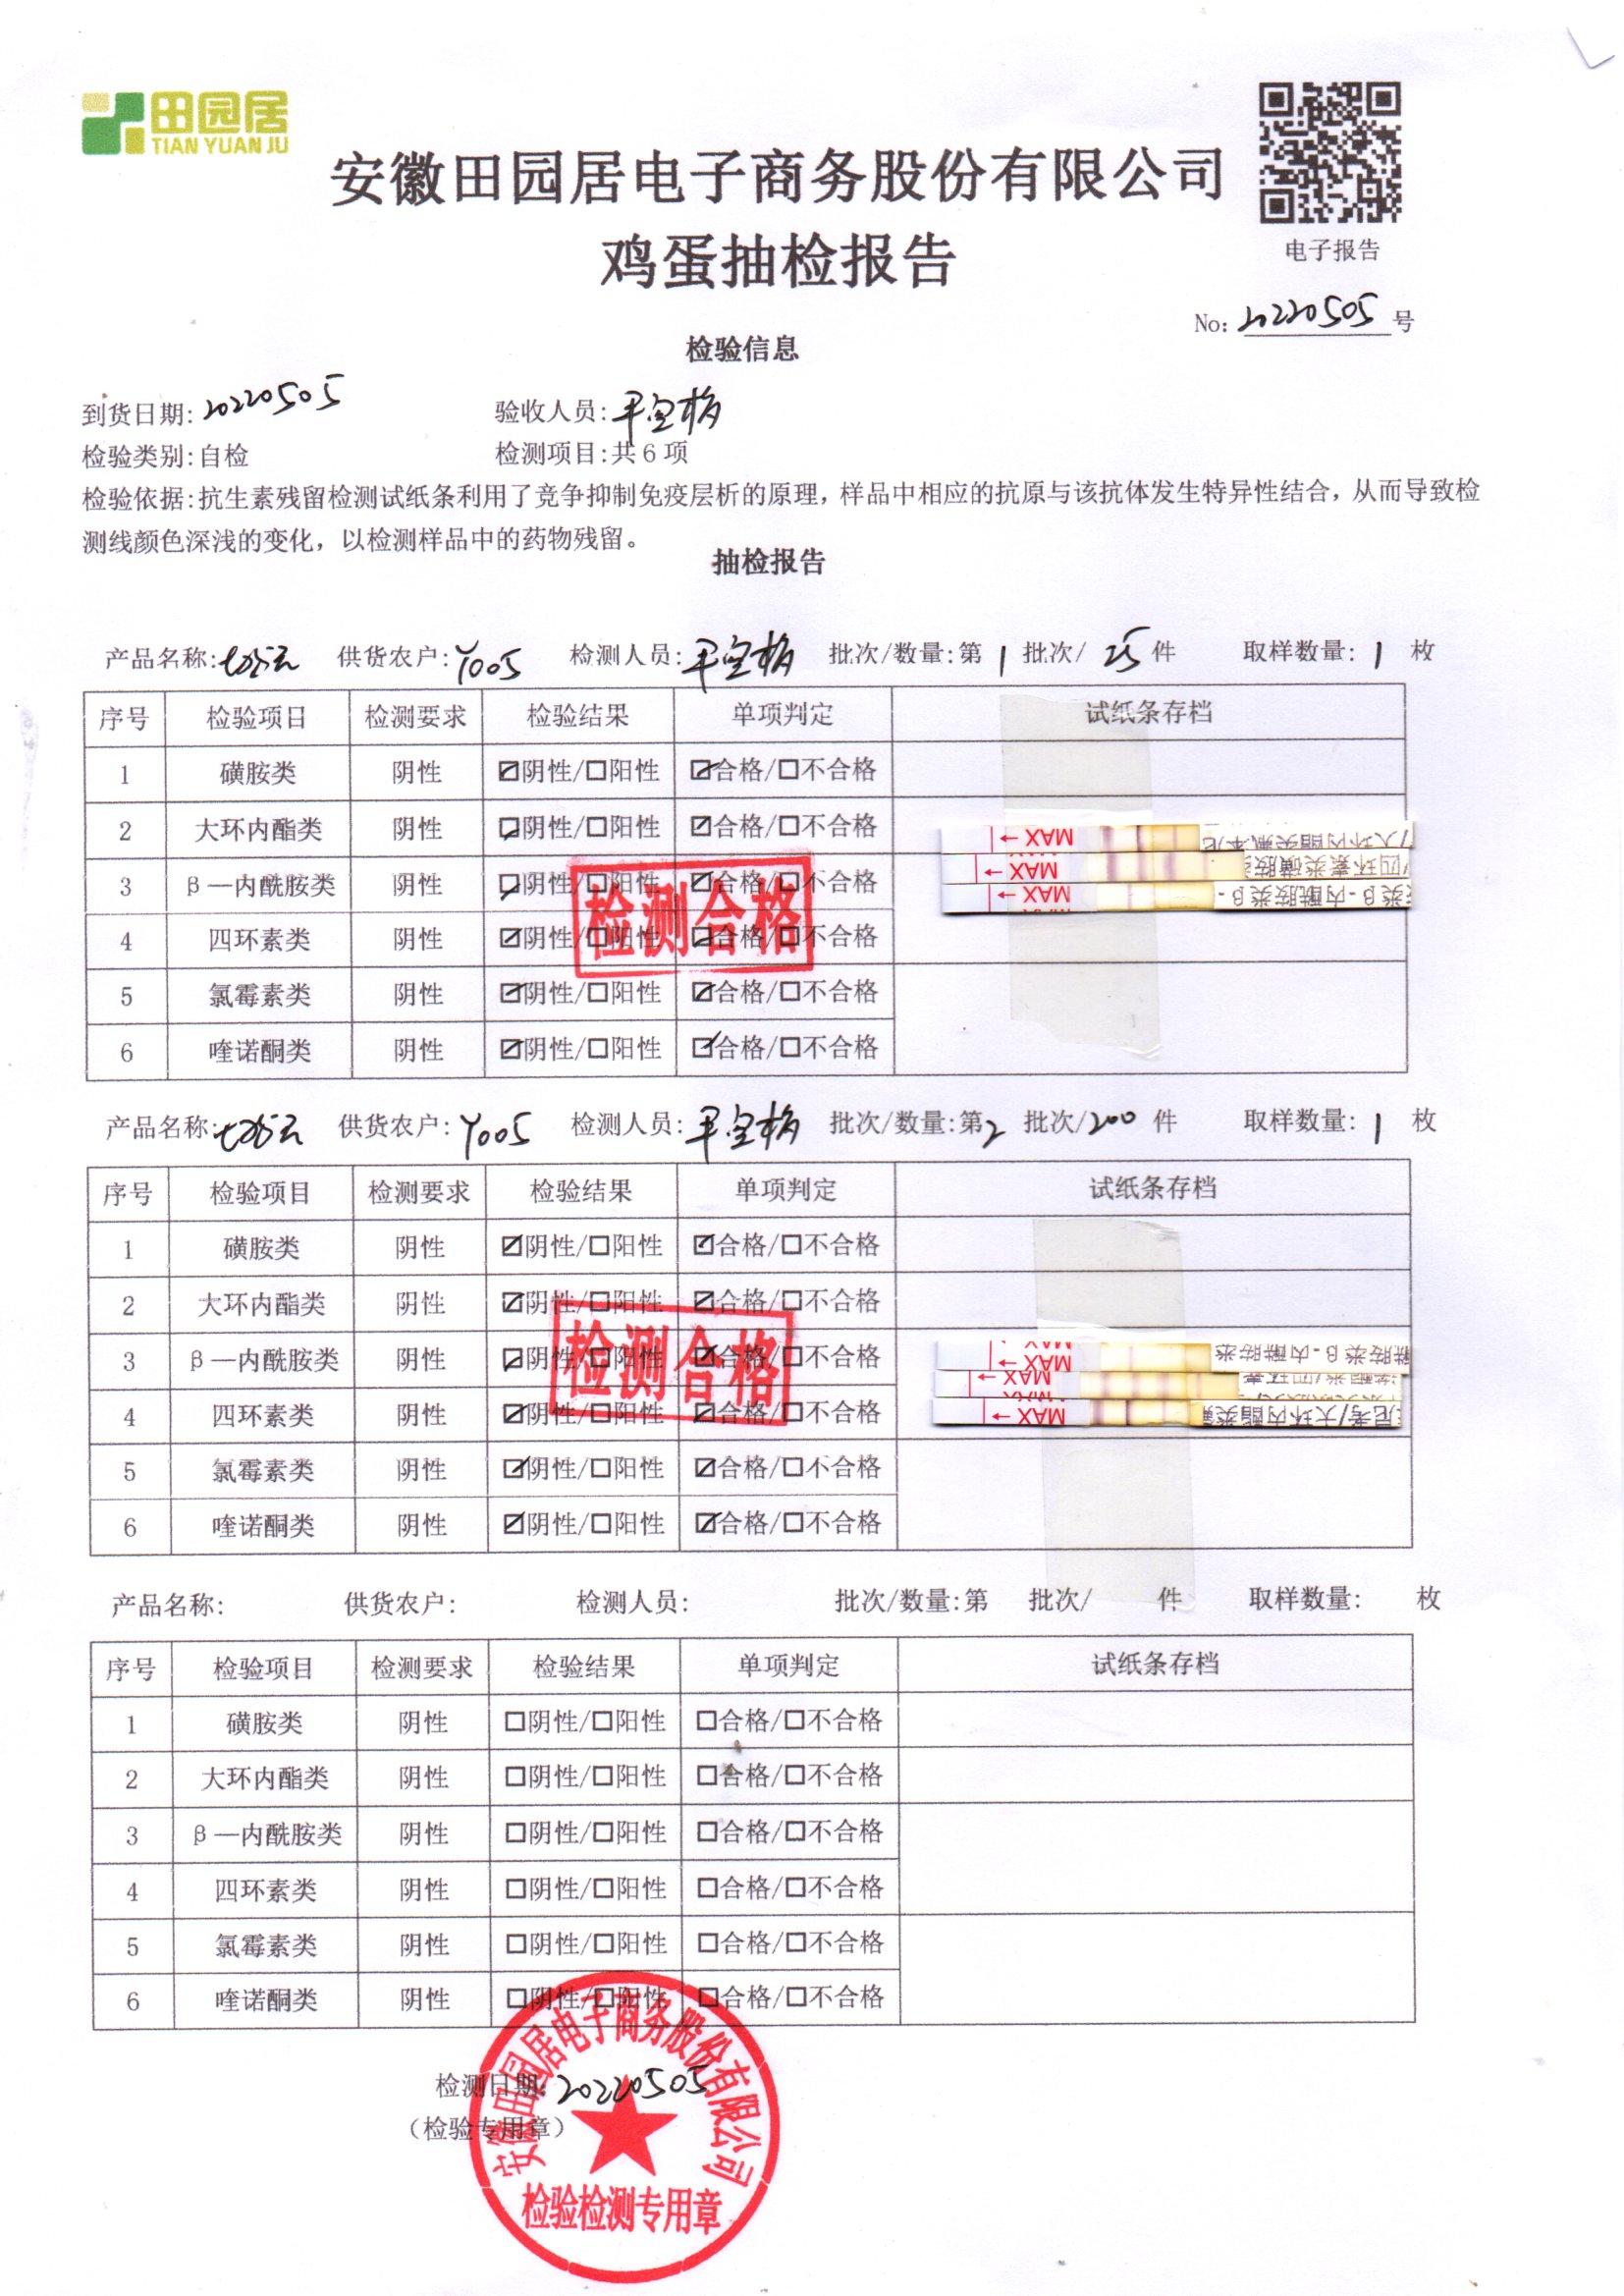 田园居
TIAN YUAN JU
安徽田园居电子商务股份有限公司
鸡蛋抽检报告
电子报告
No: 20220505 号
检验信息
到货日期: 20220505 验收人员:
检验类别:自检 检测项目:共6项
检验依据:抗生素残留检测试纸条利用了竞争抑制免疫层析的原理,样品中相应的抗原与该抗体发生特异性结合,从而导致检
测线颜色深浅的变化,以检测样品中的药物残留。
抽检报告
产品名称: 供货农户:Y005 检测人员: 批次/数量:第 1 批次/ 25 件 取样数量: 1 枚
序号 检验项日 检测要求 检验结果 单项判定 试纸条存档
1 磺胺类 阴性 ☑阴性/☐阳性 ☑合格/☐不合格
2 大环内酯类 阴性 ☑阴性/☐阳性 ☑合格/☐不合格
←MAX
3 β—内酰胺类 阴性 ☑阴性/☐阳性 ☑合格/☐不合格
←MAX
←MAX
检测合格
4 四环素类 阴性 ☑阴性/☐阳性 ☑合格/☐不合格
5 氯霉素类 阴性 ☑阴性/☐阳性 ☑合格/☐不合格
6 喹诺酮类 阴性 ☑阴性/☐阳性 ☑合格/☐不合格
产品名称: 供货农户:Y005 检测人员: 批次/数量:第2 批次/200 件 取样数量: 1 枚
序号 检验项目 检测要求 检验结果 单项判定 试纸条存档
1 磺胺类 阴性 ☑阴性/☐阳性 ☑合格/☐不合格
2 大环内酯类 阴性 ☑阴性/☐阳性 ☑合格/☐不合格
检测合格
3 β—内酰胺类 阴性 ☑阴性/☐阳性 ☑合格/☐不合格
←MAX
←MAX
4 四环素类 阴性 ☑阴性/☐阳性 ☑合格/☐不合格
←MAX
5 氯霉素类 阴性 ☑阴性/☐阳性 ☑合格/☐不合格
6 喹诺酮类 阴性 ☑阴性/☐阳性 ☑合格/☐不合格
产品名称: 供货农户: 检测人员: 批次/数量:第 批次/ 件 取样数量: 枚
序号 检验项目 检测要求 检验结果 单项判定 试纸条存档
1 磺胺类 阴性 ☐阴性/☐阳性 ☐合格/☐不合格
2 大环内酯类 阴性 ☐阴性/☐阳性 ☐合格/☐不合格
3 β—内酰胺类 阴性 ☐阴性/☐阳性 ☐合格/☐不合格
4 四环素类 阴性 ☐阴性/☐阳性 ☐合格/☐不合格
5 氯霉素类 阴性 ☐阴性/☐阳性 ☐合格/☐不合格
6 喹诺酮类 阴性 ☐阴性/☐阳性 ☐合格/☐不合格
检测日期: 20220505
(检验专用章)
安徽田园居电子商务股份有限公司
检验检测专用章